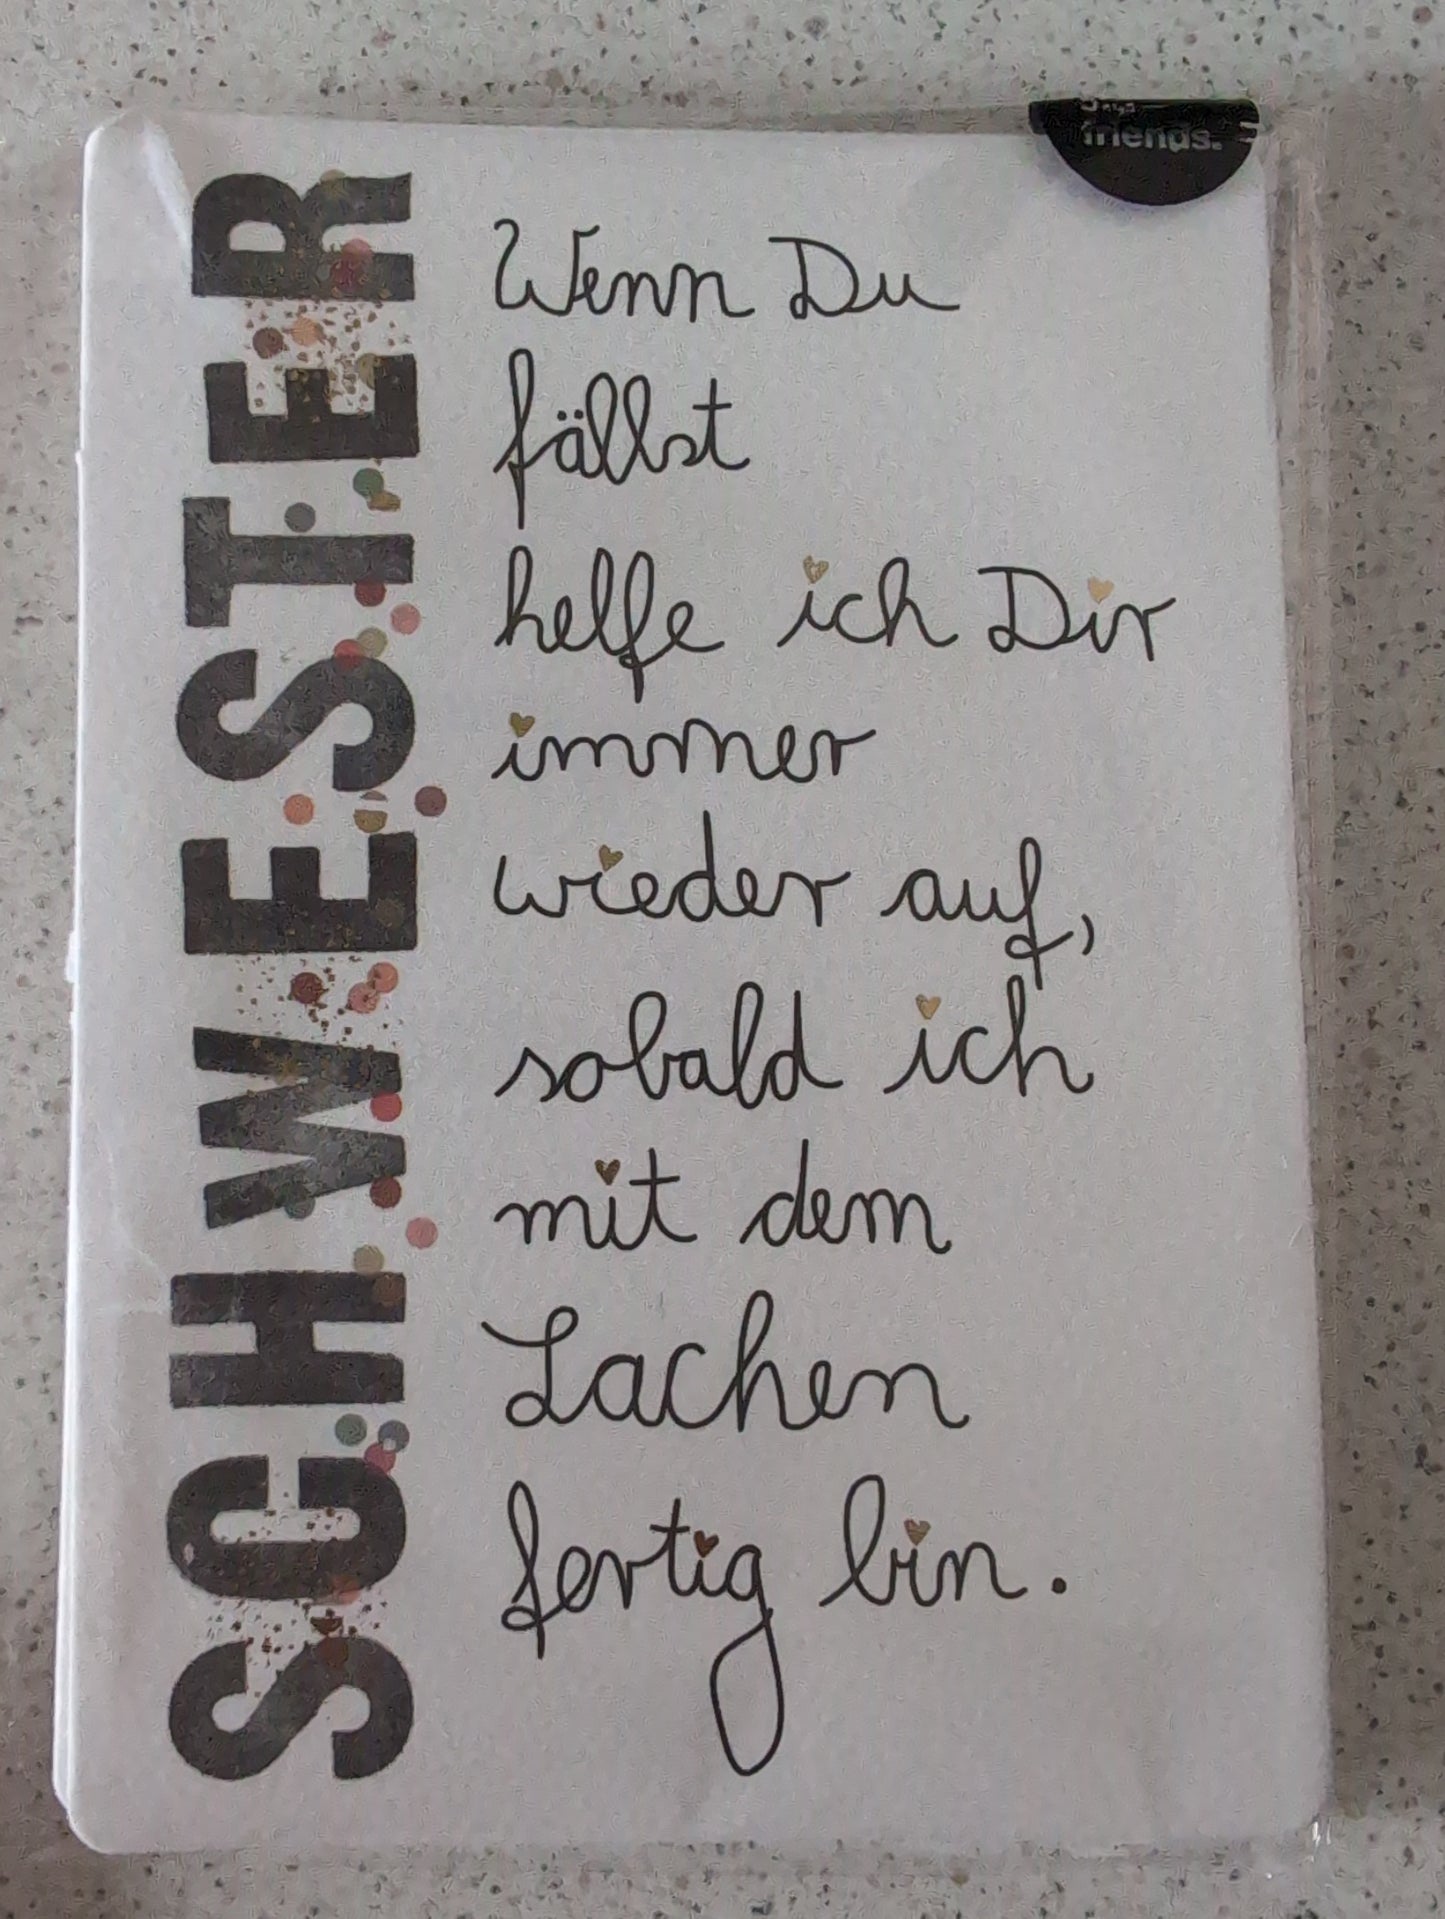 SCHWESTER
Wenn Du
fällst
helfe ich Dir
immer
wieder auf,
sobald ich
mit dem
Lachen
fertig bin.
friends.